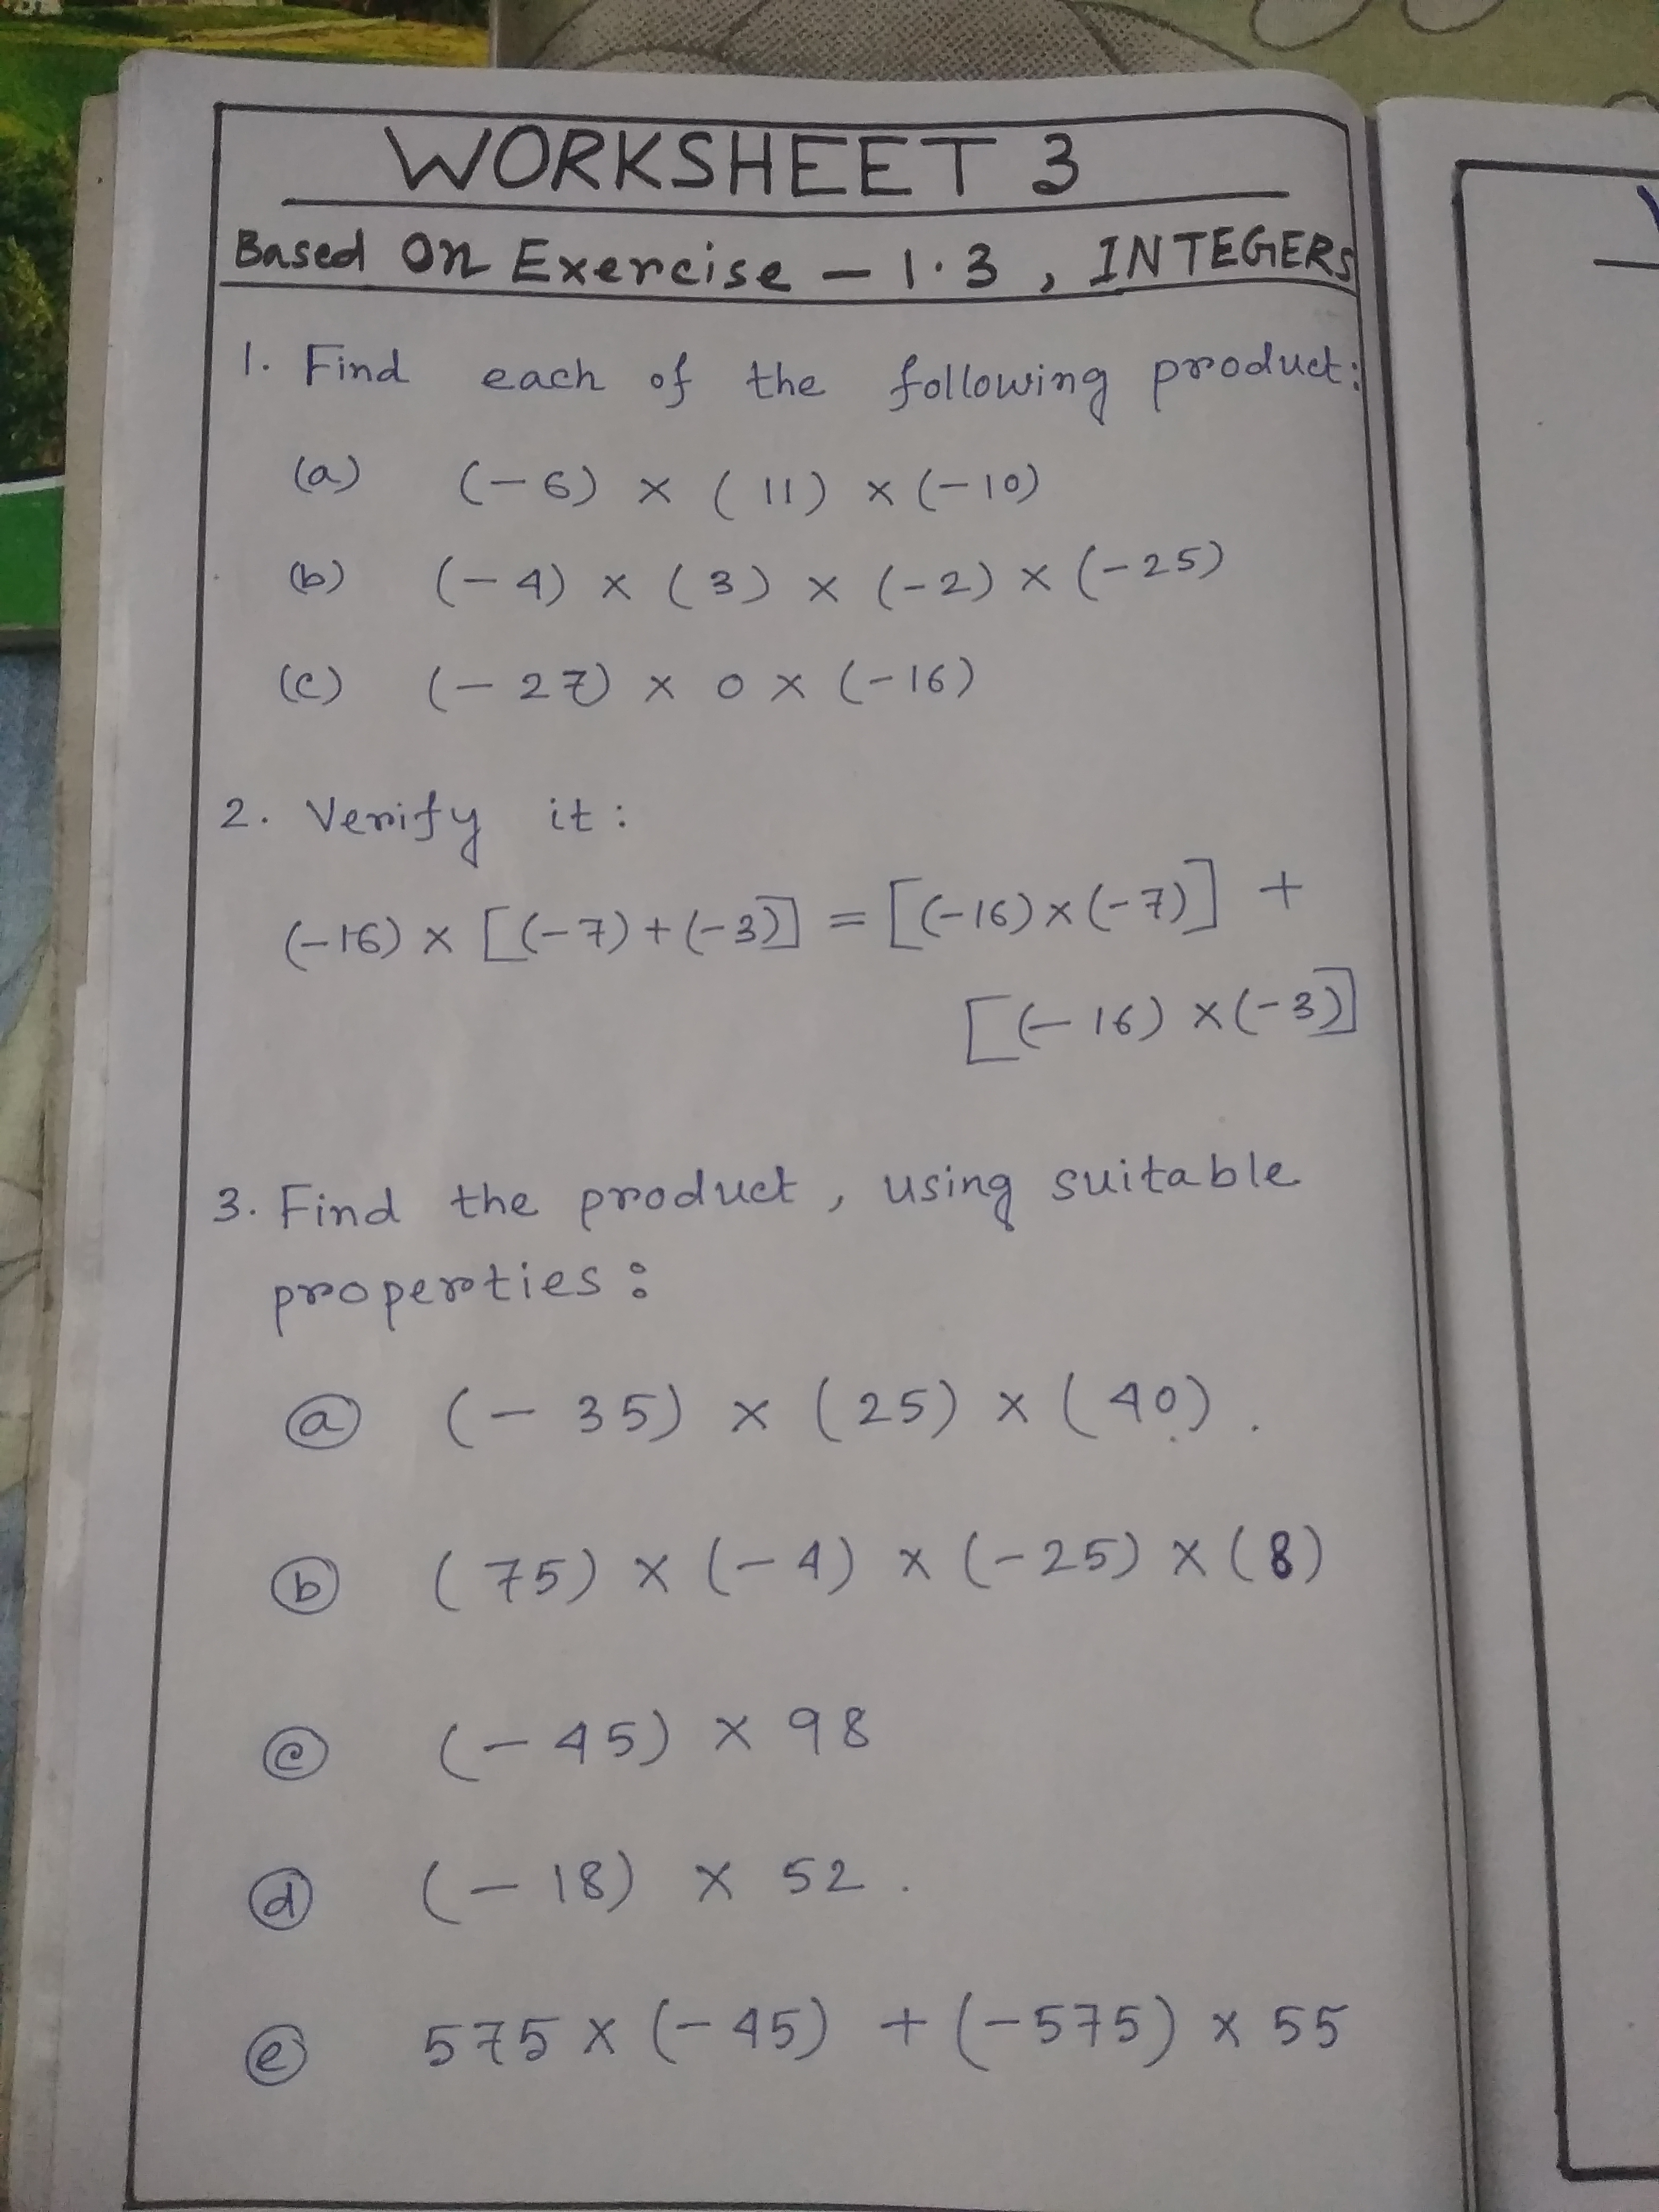 WORKSHEET 3
Based On Exercise – 1.3, INTEGERS
1. Find each of the following product:
(a) (-6) × (11) × (-10)
(b) (-4) × (3) × (-2) × (-25)
(c) (-27) × 0 × (-16)
2. Verify it:
(-16) × [(-7)+(-3)] = [(-16)×(-7)] +
[(-16) × (-3)]
3. Find the product, using suitable
properties:
ⓐ (-35) × (25) × (40).
ⓑ (75) × (-4) × (-25) × (8)
ⓒ (-45) × 98
ⓓ (-18) × 52.
ⓔ 575 × (-45) + (-575) × 55